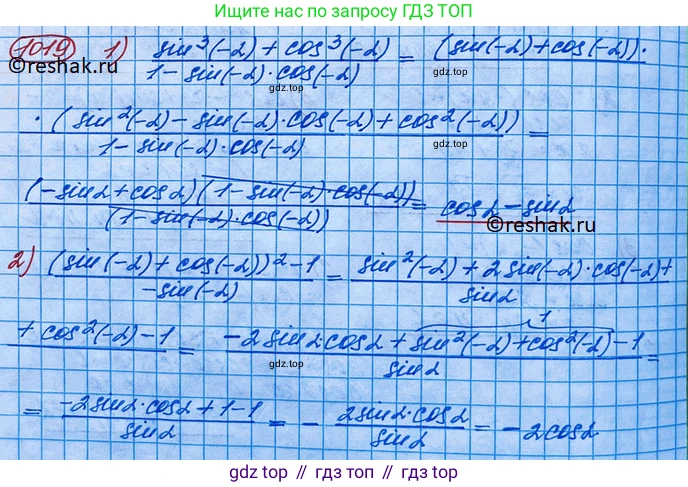 Ищите нас по запросу ГДЗ ТОП
1019 1) (sin³(-α) + cos³(-α)) / (1 - sin(-α)·cos(-α)) = (sin(-α)+cos(-α))·
©reshak.ru
gdz.top
·(sin²(-α) - sin(-α)·cos(-α) + cos²(-α)) / (1 - sin(-α)·cos(-α)) =
gdz.top
(-sinα + cosα)(1 - sin(-α)·cos(-α)) / (1 - sin(-α)·cos(-α)) = cosα - sinα
©reshak.ru
2) ((sin(-α) + cos(-α))² - 1) / -sin(-α) = sin²(-α) + 2sin(-α)·cos(-α) + / sinα
+ cos²(-α) - 1 = (-2sinα·cosα + sin²(-α) + cos²(-α) - 1) / sinα =
1
gdz.top
= (-2sinα·cosα + 1 - 1) / sinα = - 2sinα·cosα / sinα = -2cosα
gdz top // гдз топ // gdz.top // гдз.топ